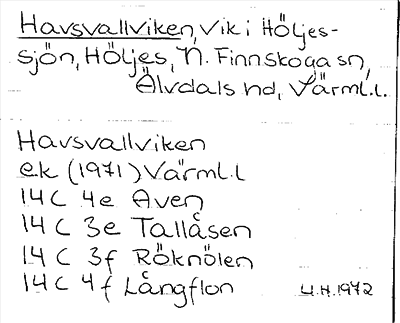 Havsvallviken, vik i Höljes-
sjön, Höljes, N. Finnskoga sn,
Älvdals hd, Värml.l.
Havsvallviken
ek (1971) Värml.l
14 C 4e Aven
14 C 3e Tallåsen
14 C 3f Röknölen
14 C 4f Långflon U.H. 1972